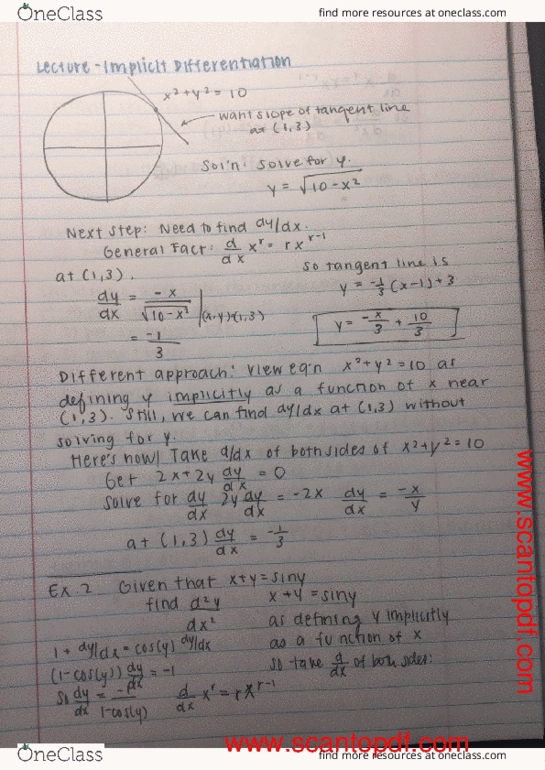 OneClass
find more resources at oneclass.com
Lecture - Implicit Differentiation
x²+y² = 10
want slope of tangent line
at (1,3)
Sol'n: solve for y.
y = √10-x²
Next step: Need to find dy/dx.
General Fact: d/dx x^r = r x^(r-1)
at (1,3).
so tangent line is
y = -1/3 (x-1)+3
dy/dx = -x/√10-x² |(x,y)=(1,3)
= -1/3
y = -x/3 + 10/3
Different approach: view eq'n x²+y²=10 as
defining y implicitly as a function of x near
(1,3). Still, we can find dy/dx at (1,3) without
solving for y.
Here's how! Take d/dx of both sides of x²+y²=10
Get 2x+2y dy/dx = 0
Solve for dy/dx 2y dy/dx = -2x dy/dx = -x/y
at (1,3) dy/dx = -1/3
Ex. 2 Given that x+y=siny
find d²y/dx²
x+y = siny
as defining y implicitly
as a function of x
so take d/dx of both sides:
1 + dy/dx = cos(y) dy/dx
(1-cos(y)) dy/dx = -1
so dy/dx = -1/1-cos(y)
d/dx x^r = r x^(r-1)
www.scantopdf.com
www.scantopdf.com
OneClass
find more resources at oneclass.com